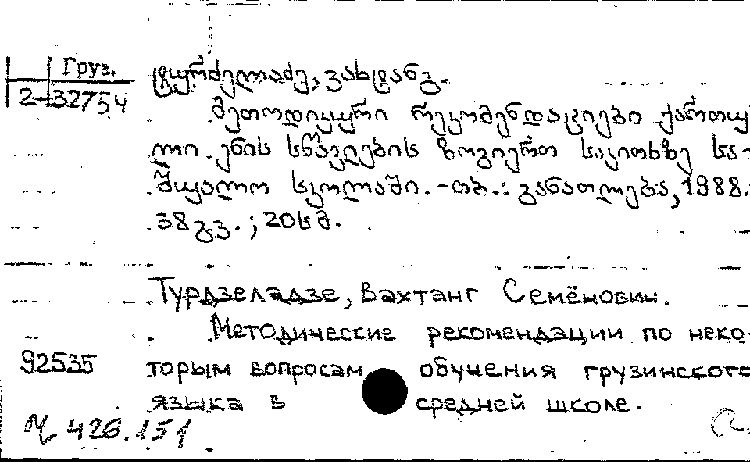 Груз.
2-32754
ტურძელაძე, ვახტანგ.
მეთოდიკური რეკომენდაციები ქართუ
ლი ენის სწავლების ზოგიერთ საკითხზე სა-
შუალო სკოლაში.-თბ.: განათლება, 1988.
38გვ.; 20სმ.
Турдзеладзе, Вахтанг Семёнович.
Методические рекомендации по неко-
92535 торым вопросам обучения грузинского
языка в средней школе.
426.151